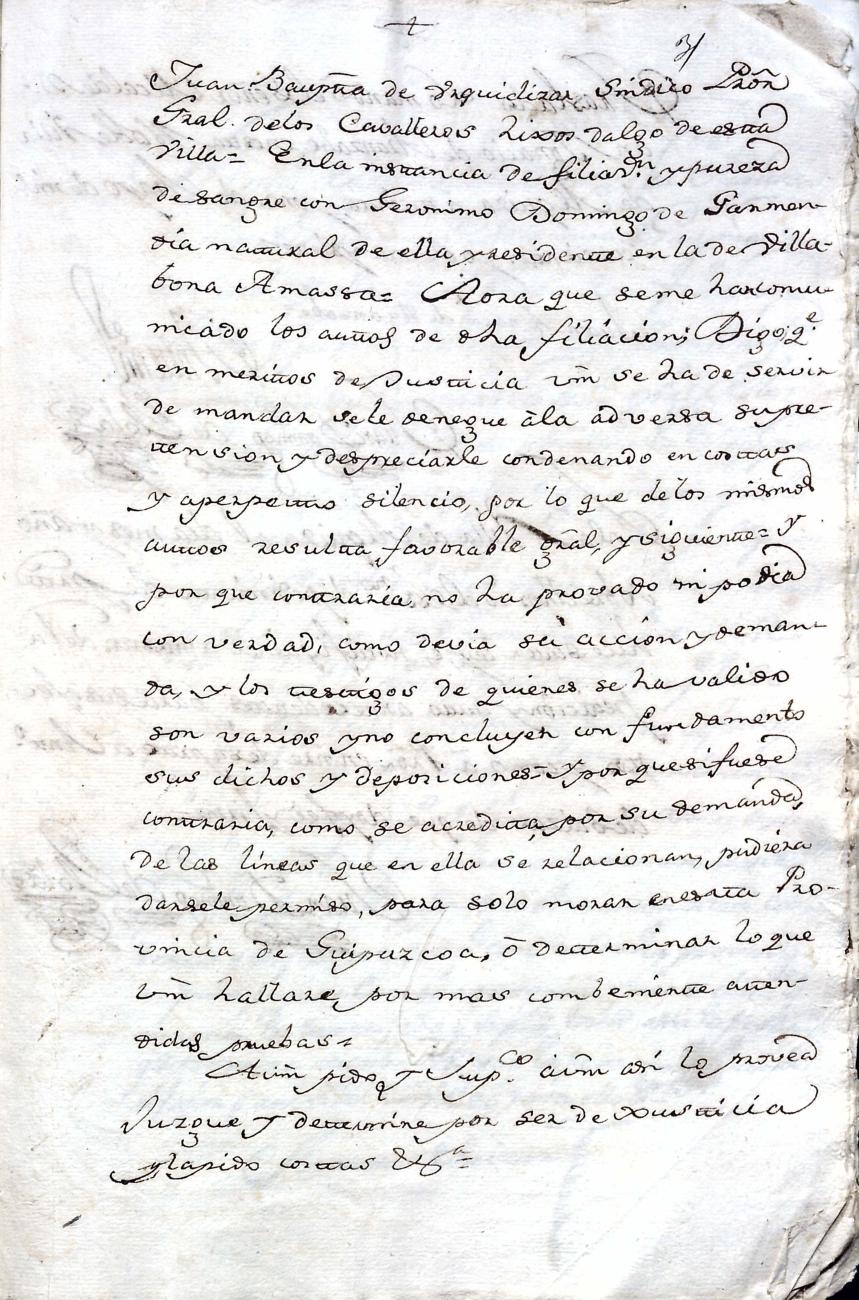 31
Juan Bauptta de Urquidizar Sindico Prõr
Gral. delos Cavalleros hixos dalgo de esta
Villa= Enla instancia de filiaz.on y pureza
de sangre con Geronimo Domingo de Garmen-
dia natural de ella, y residente en la de Villa-
bona Amassa= Aora que seme han comu-
nicado los auttos de dha filiacion; Digo, q.e
en merittos de Justicia vm̃ se ha de servir
de mandar sele deneque àla adversa supre-
tension y despreciarle condenando en costtas
y aperpettuo silencio, por lo que delos mismos
auttos resultta favorable grãl, y siguiente= y
por que conttraria no ha provado ni podia
con verdad, como devia su accion y deman-
da, y los testtigos de quienes se ha valido
son varios yno concluyen con fundamento
sus dichos y deposiciones= y por que si fuese
conttraria, como se acreditta por su demanda,
de las lineas que en ella se relacionan, pudiera
darsele permiso, para solo morar enestta Pro-
vincia de Guipuzcoa, ò determinar lo que
Vm̃ hallare, por mas combeniente atten-
didas pruebas=
Avm̃ pido y Sup.co avm̃ asi lo provea
Juzgue y determine por ser de Justicia
yla pido costtas &.a=